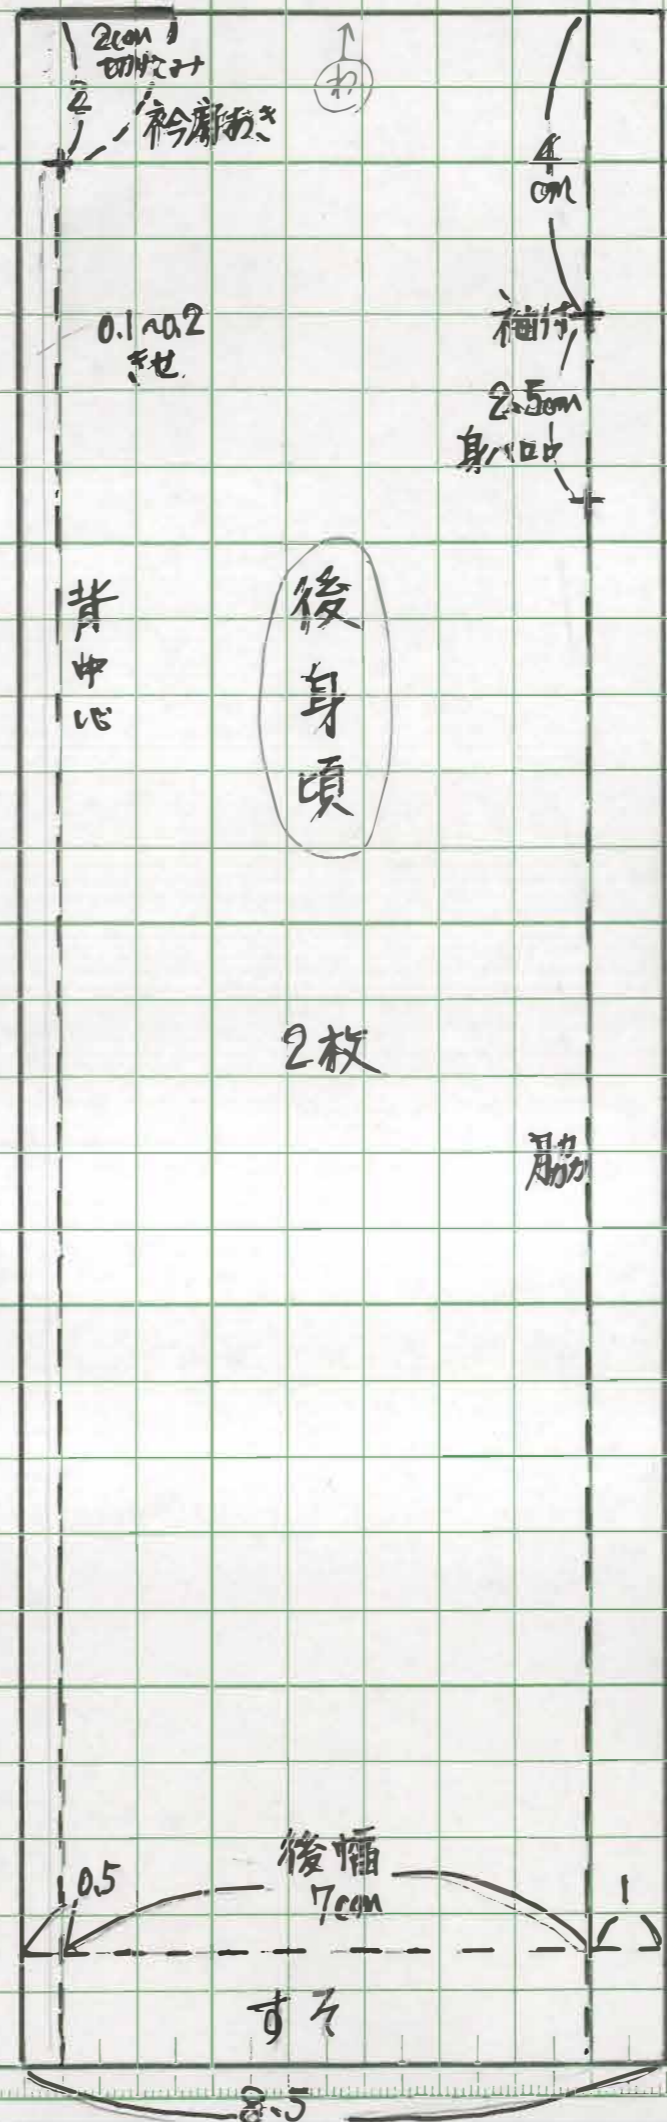 2cm
切けこみ
2
衿廻あき
わ
4
cm
0.1〜0.2
きせ
袖付
2.5cm
身八ロ
背中心
後身頃
2枚
脇
0.5
後幅
7cm
1
すそ
8.5